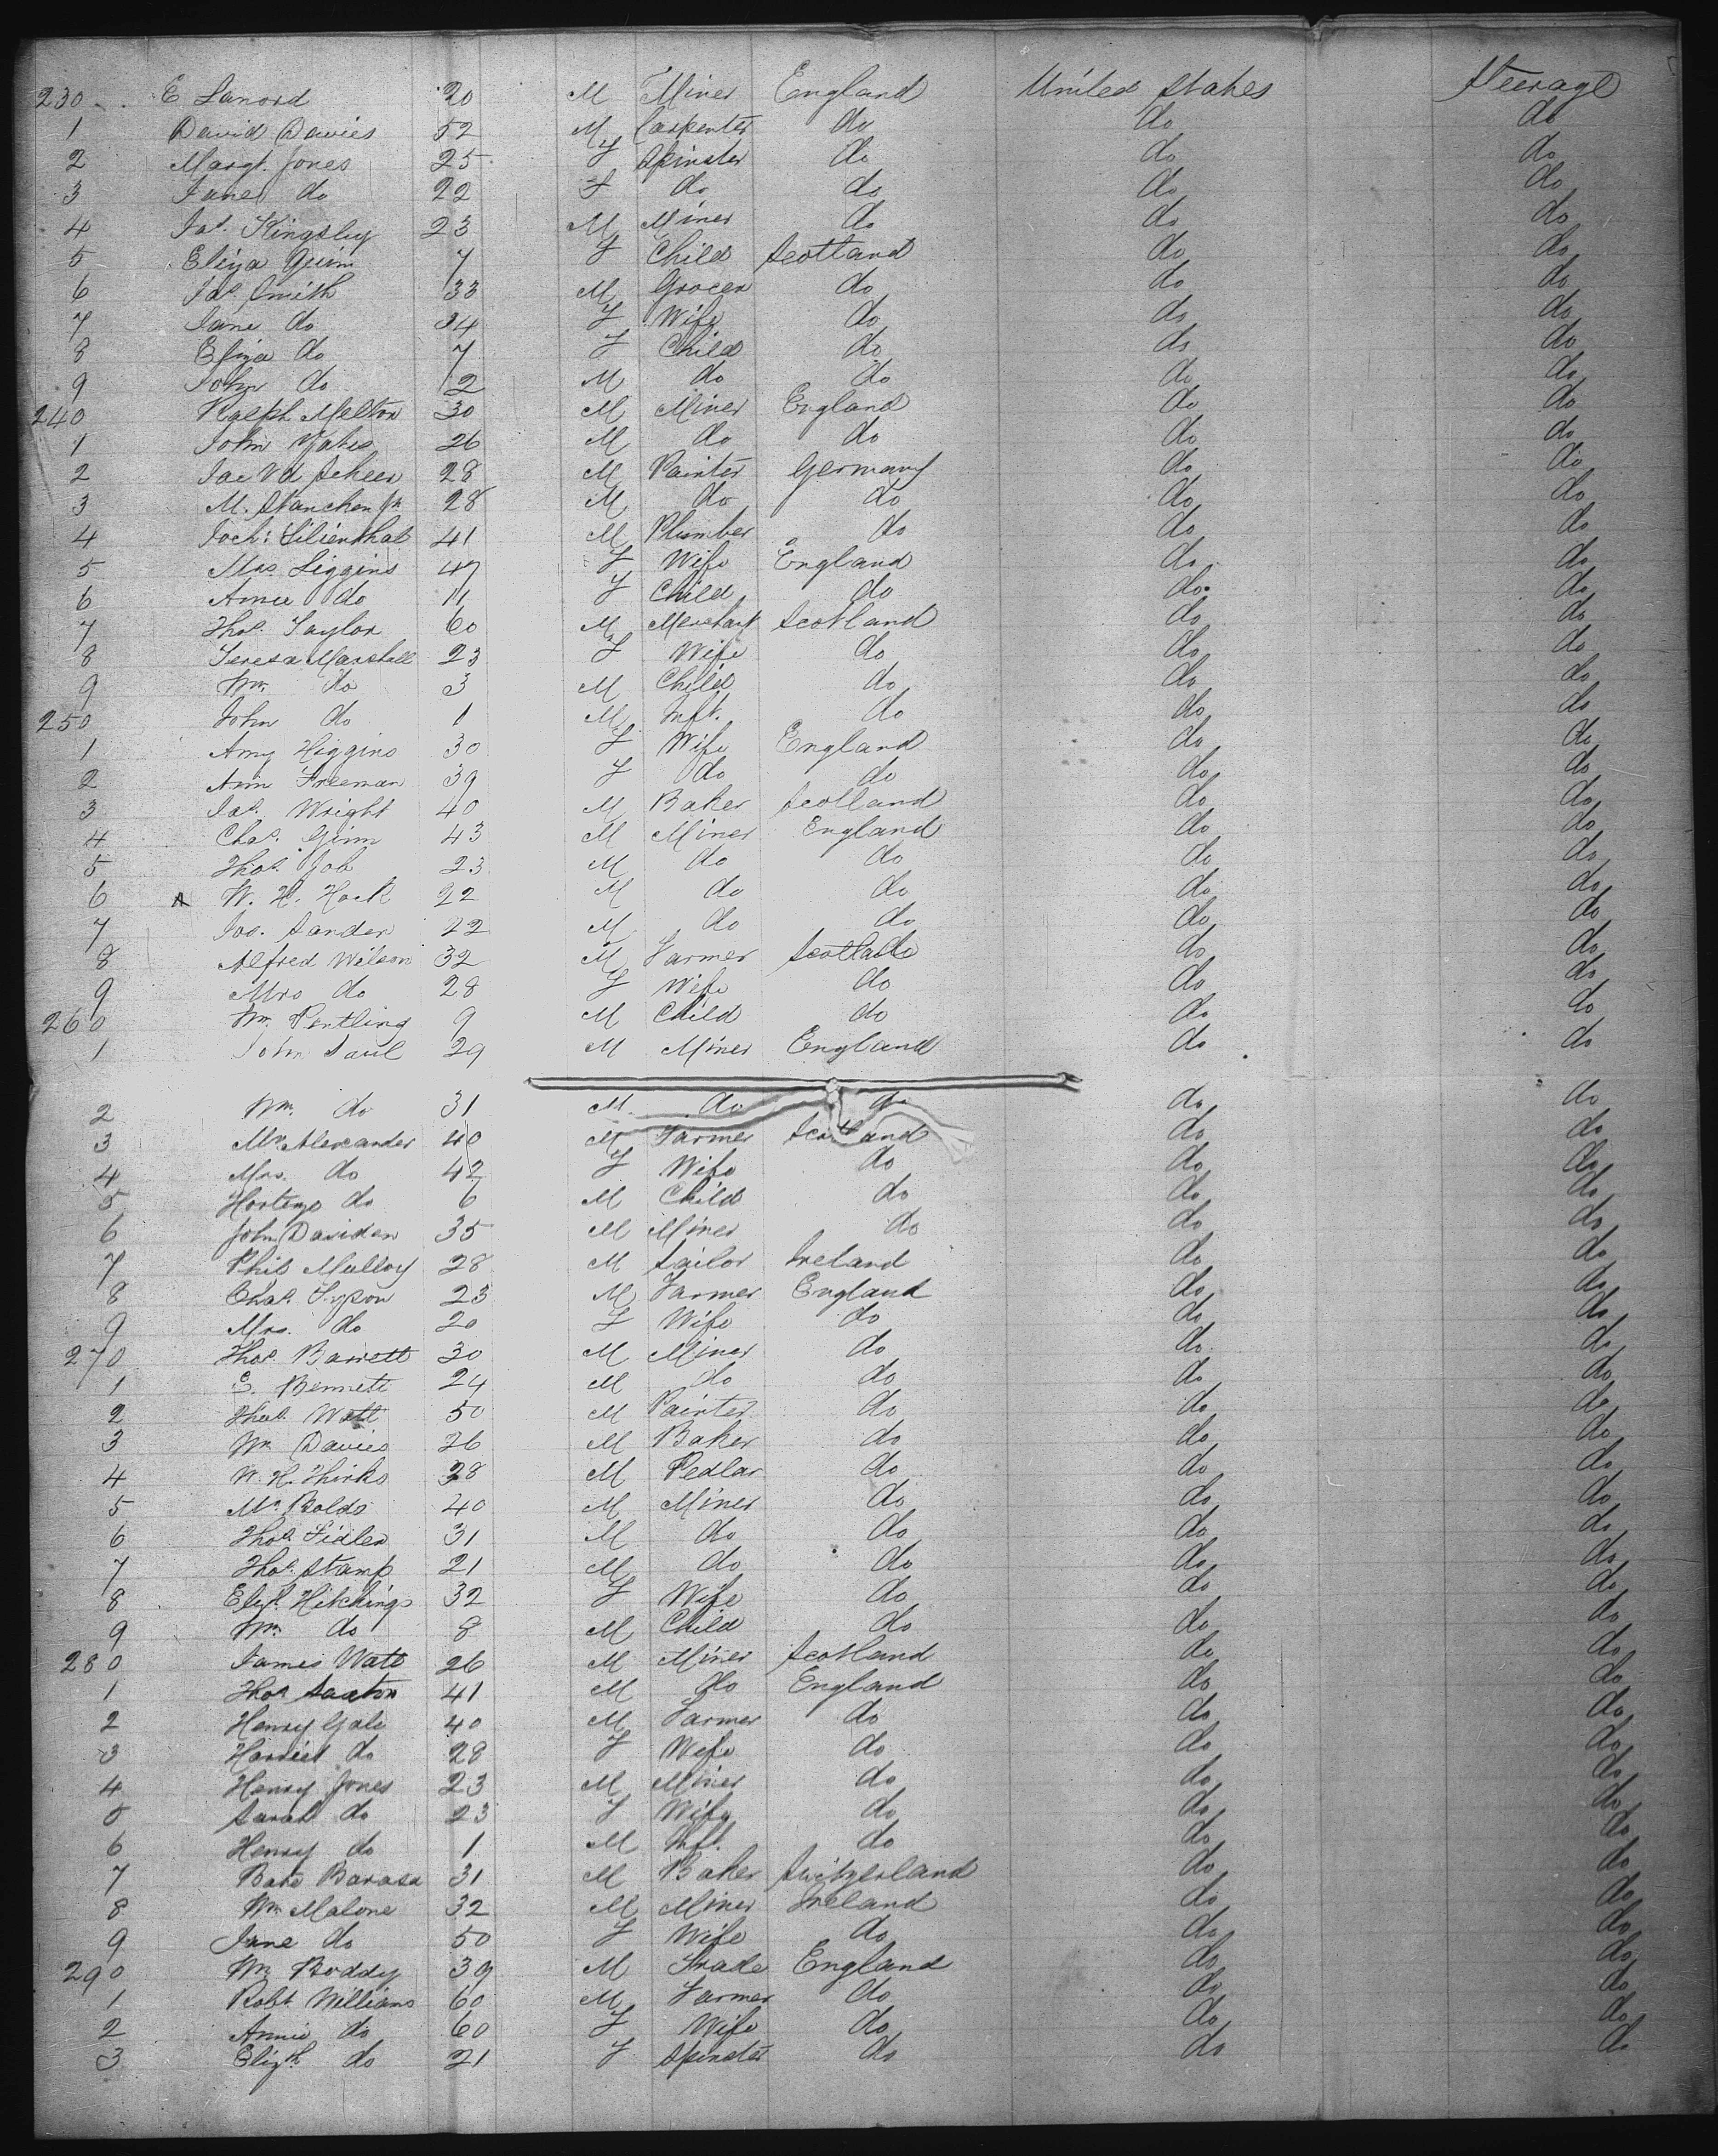 230 E Lanord 20 M Miner England United States Steerage
1 David Davies 52 M Carpenter do do do
2 Margt. Jones 25 F Spinster do do do
3 Jane do 22 F do do do do
4 Jas. Kingsley 23 M Miner do do do
5 Eliza Quinn 7 F Child Scotland do do
6 Jas. Smith 33 M Grocer do do do
7 Jane do 34 F Wife do do do
8 Eliza do 7 F Child do do do
9 John do 2 M do do do do
240 Ralph Melton 30 M Miner England do do
1 John Yates 26 M do do do do
2 Jac Vd Scheer 28 M Painter Germany do do
3 M. 28 M do do do do
4 Joch: Lilienthal 41 M Plumber do do do
5 Mrs. Liggins 47 F Wife England do do
6 Annie do 11 F Child do do do
7 Thos. Taylor 60 M Merchant Scotland do do
8 Teresa Marshall 23 F Wife do do do
9 Wm. do 3 M Child do do do
250 John do 1 M Inft. do do do
1 Amy Higgins 30 F Wife England do do
2 Ann Freeman 39 F do do do do
3 Jas. Wright 40 M Baker Scotland do do
4 Chas. Ginn 43 M Miner England do do
5 Thos. Job 23 M do do do do
6 W. H. Hock 22 M do do do do
7 Jos. Sanden 22 M do do do do
8 Alfred Wilson 32 M Farmer Scotland do do
9 Mrs do 28 F Wife do do do
260 Wm. Pentling 9 M Child do do do
1 John Saul 29 M Miner England do do
2 Wm. do 31 M do do do do
3 Mr Alexander 40 M Farmer Scotland do do
4 Mrs. do 42 F Wife do do do
5 do 6 M Child do do do
6 John Davidson 35 M Miner do do do
7 Phil Mulloy 28 M Sailor Ireland do do
8 Chas. Tyson 23 M Farmer England do do
9 Mrs. do 20 F Wife do do do
270 Thos. Barrett 30 M Miner do do do
1 E. Bennett 24 M do do do do
2 Thos. Watt 50 M Painter do do do
3 Wm Davies 26 M Baker do do do
4 W. H. Thirks 28 M Pedlar do do do
5 Mr. Bolds 40 M Miner do do do
6 Thos Fidler 31 M do do do do
7 Thos. Stamp 21 M do do do do
8 Elizh. Hitchings 32 F Wife do do do
9 Wm. do 8 M Child do do do
280 James Watt 26 M Miner Scotland do do
1 Thos Saxton 41 M do England do do
2 Henry Gale 40 M Farmer do do do
3 Harriet do 28 F Wife do do do
4 Henry Jones 23 M Miner do do do
5 Sarah do 23 F Wife do do do
6 Henry do 1 M Inft. do do do
7 Bate Barasa 31 M Baker Switzerland do do
8 Wm Malone 32 M Miner Ireland do do
9 Jane do 50 F Wife do do do
290 Wm Boddy 39 M Trade England do do
1 Robt Williams 60 M Farmer do do do
2 Annie do 60 F Wife do do do
3 Elizth do 21 F Spinster do do do